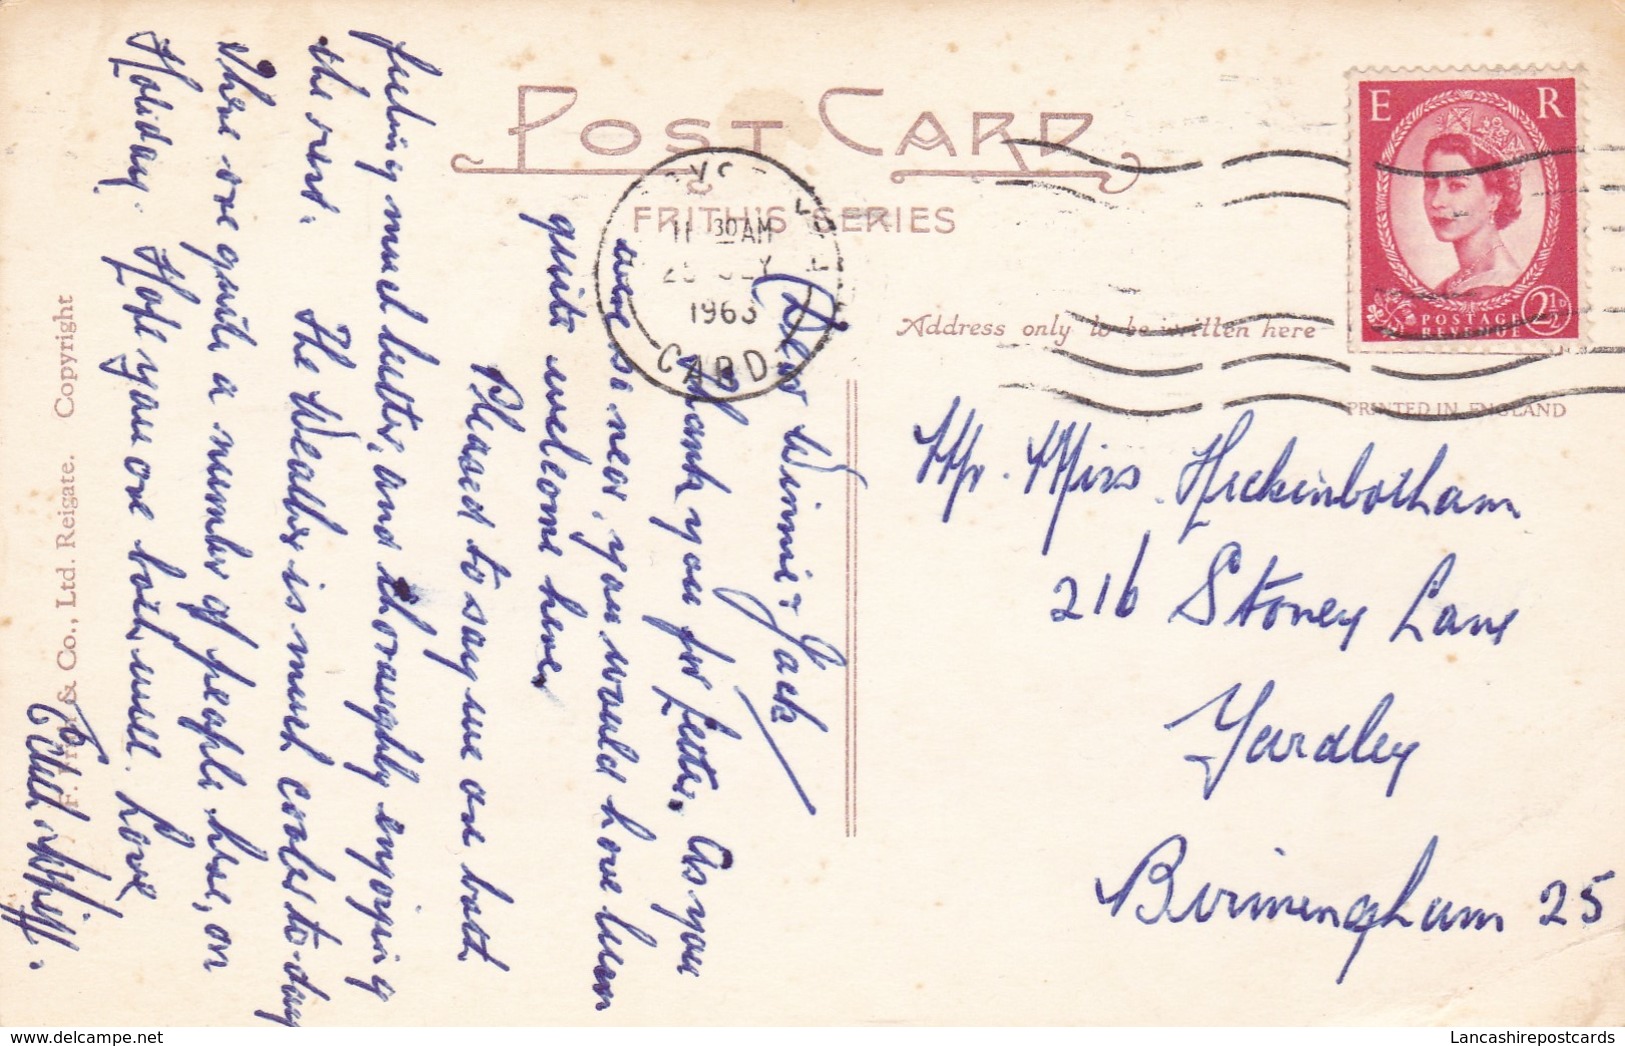 POST CARD
FRITH'S SERIES
Address only to be written here
PRINTED IN ENGLAND
E R
POSTAGE
REVENUE
2½D
11 30 AM
1963
CARD
Mr. Miss. Hickinbotham
216 Stoney Lane
Yardley
Birmingham 25
Dear Winnie & Jack
Thank you for letter. As you
were so near, you would have been
quite welcome here.
Pleased to say we are both
feeling much better, and thoroughly enjoying
the rest. The Weather is much cooler to-day
There are quite a number of people here, on
Holiday. Hope you are both well. Love
& Miff.
F. Frith & Co., Ltd. Reigate. Copyright
Lancashirepostcards